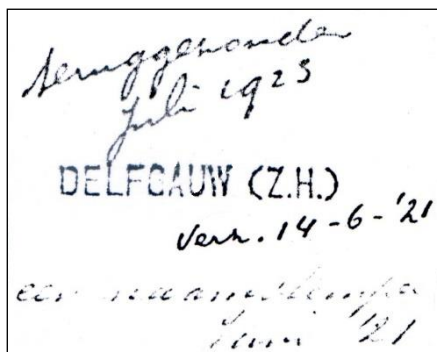 teruggezonden
juli 1923
DELFGAUW (Z.H.)
Verz. 14-6-'21
een naamstempel
Juni '21